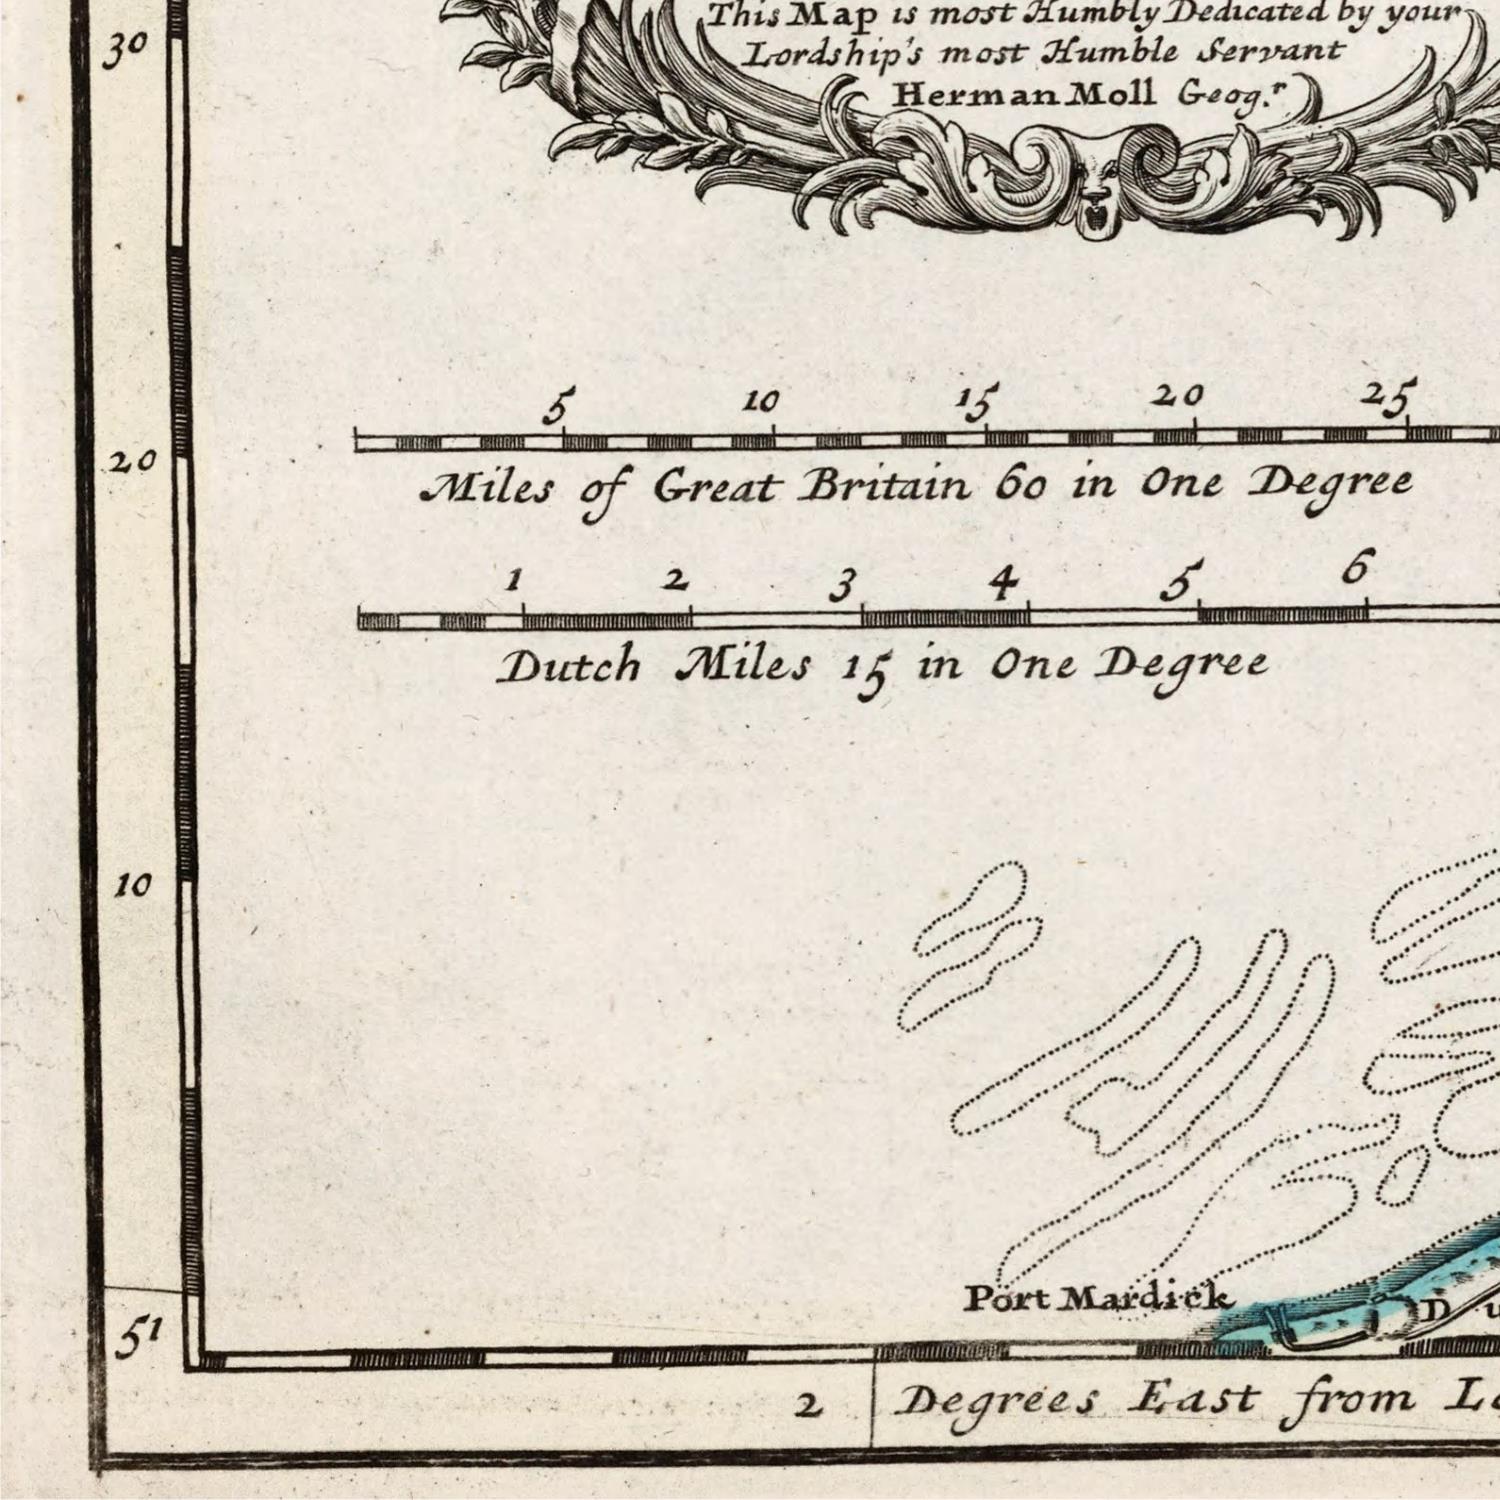 This Map is most Humbly Dedicated by your
Lordship's most Humble Servant
Herman Moll Geog.r
30
5 10 15 20 25
20
Miles of Great Britain 60 in One Degree
1 2 3 4 5 6
Dutch Miles 15 in One Degree
10
Port Mardick
D u
51
2 Degrees East from Lo